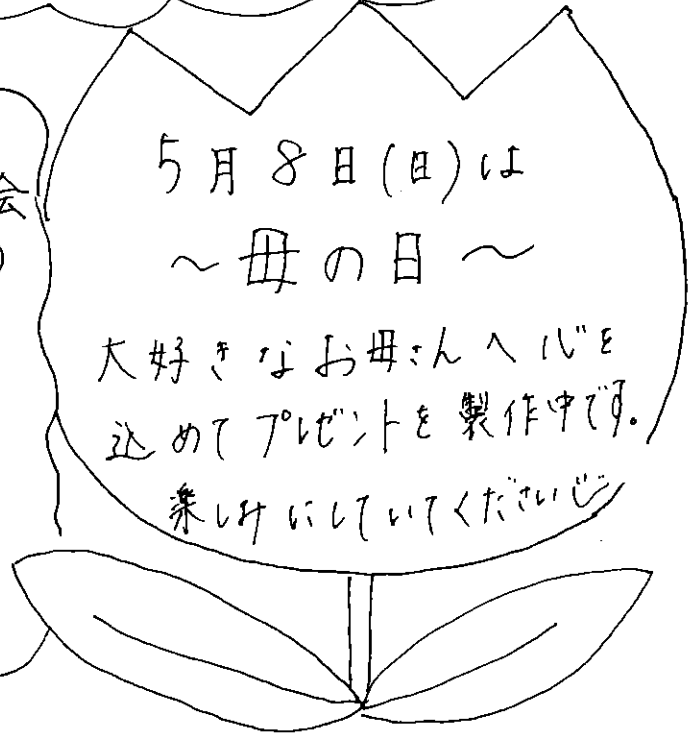 5月8日(日)は
~母の日~
大好きなお母さんへ心を
込めてプレゼントを製作中です。
楽しみにしていてください
会